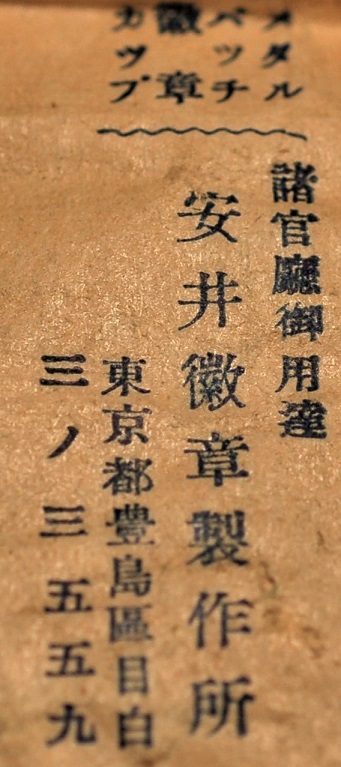 メダル
バッチ
徽章
カップ
諸官廳御用達
安井徽章製作所
東京都豊島區目白
三ノ三五五九